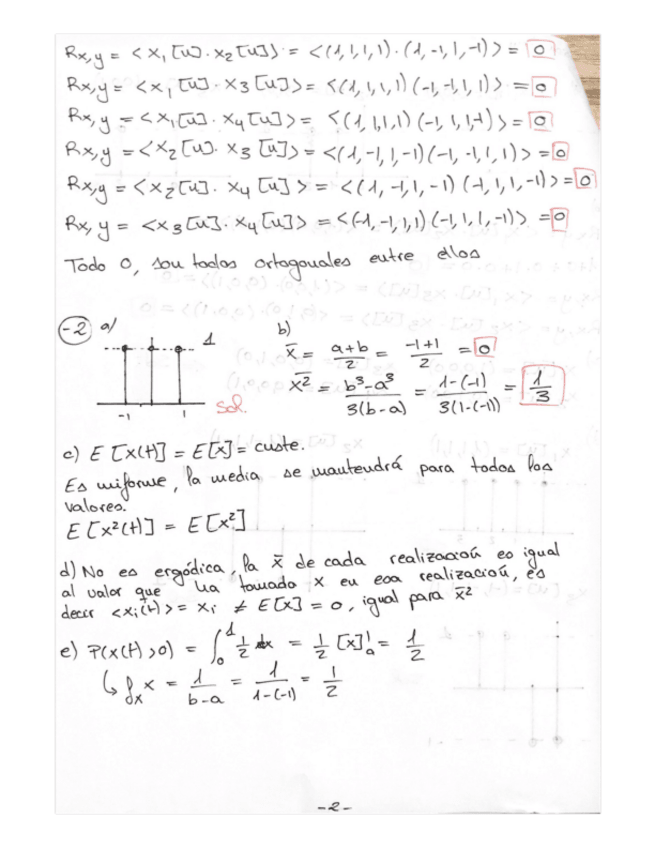 Rx,y = <x₁[u]·x₂[u]> = <(1,1,1,1)·(1,-1,1,-1)> = 0
Rx,y = <x₁[u]·x₃[u]> = <(1,1,1,1)(-1,-1,1,1)> = 0
Rx,y = <x₁[u]·x₄[u]> = <(1,1,1,1)(-1,1,1,-1)> = 0
Rx,y = <x₂[u]·x₃[u]> = <(1,-1,1,-1)(-1,-1,1,1)> = 0
Rx,y = <x₂[u]·x₄[u]> = <(1,-1,1,-1)(-1,1,1,-1)> = 0
Rx,y = <x₃[u]·x₄[u]> = <(-1,-1,1,1)(-1,1,1,-1)> = 0
Todo 0, son todos ortogonales entre ellos
-2 a)
1
-1 1
sol.
b)
x̄ = a+b/2 = -1+1/2 = 0
x̄² = b³-a³/3(b-a) = 1-(-1)/3(1-(-1)) = 1/3
c) E[x(t)] = E[x] = custe.
Es uniforme, la media se mantendrá para todos los
valores.
E[x²(t)] = E[x²]
d) No es ergódica, la x̄ de cada realización es igual
al valor que ha tomado x en esa realización, es
decir <xᵢ(t)> = xᵢ ≠ E[x] = 0, igual para x̄²
e) P(x(t)>0) = ∫₀¹ 1/2 dx = 1/2 [x]¹ₐ = 1/2
↳ fₓx = 1/b-a = 1/1-(-1) = 1/2
-2-